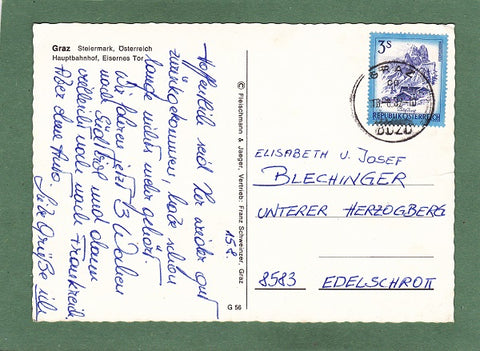 Graz Steiermark, Österreich
Hauptbahnhof, Eisernes Tor
Hoffentlich seid Ihr wieder gut
zurückgekommen, habe schon
lange nichts mehr gehört.
Wir fahren jetzt 3 Wochen
nach Südtirol und dann
vielleicht noch nach Frankreich
Aber ohne Auto. Liebe Grüße
© Fleischmann & Jaeger, Vertrieb: Franz Schweinzer, Graz
G 56
3S
REPUBLIK ÖSTERREICH
GRAZ
8020
ELISABETH U. JOSEF
BLECHINGER
UNTERER HERZOGBERG
8583 EDELSCHROTT